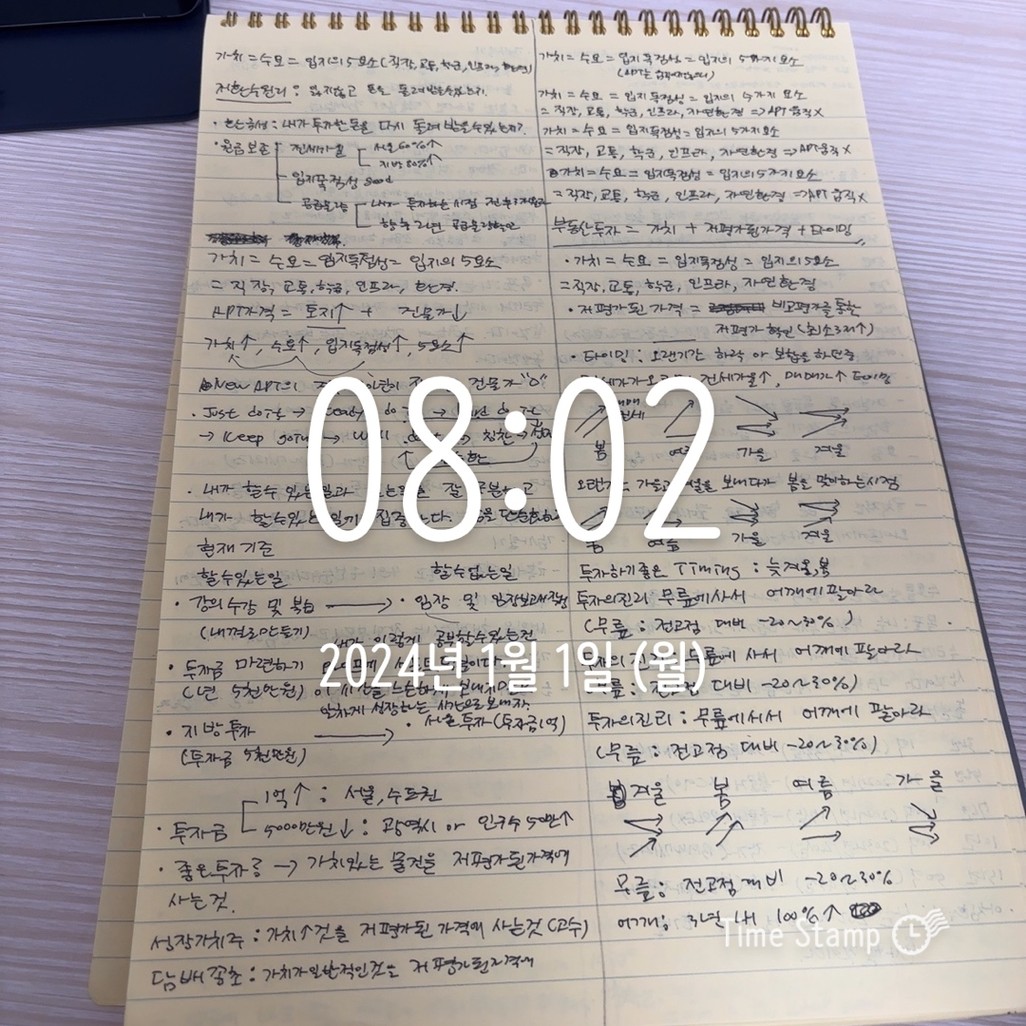 가치 = 수요 = 입지의 5요소 (직장, 교통, 학군, 인프라, 환경)
저환수원리 : 잃지않고 돈을 돌려받을수있는가?
· 환금성 : 내가 투자한 돈을 다시 돌려 받을수있는가?
· 원금보존 전세가율 서울 60%↑
지방 80%↑
입지독점성 good
공급물량 내가 투자하는 시점 전후
향후 2년 공급물량확인
가치 = 수요 = 입지독점성 = 입지의 5요소
= 직장, 교통, 학군, 인프라, 환경.
APT가격 = 토지↑ + 건물가↓
가치↑, 수요↑, 입지독점성↑, 5요소↑
New APT의 건물가 "0"
· Just do it → do it → Hard do it
→ Keep going → Well → 칭찬 → 성장
· 내가 할수있는일과 잘 구분하고
내가 할수있는일에 집중한다
현재 기준
할수있는일 할수없는일
· 강의수강 및 복습 → · 임장 및 임장보고서작성
(내껄로만들기)
내가 이렇게 공부할수있는건
· 투자금 마련하기
(년 5천만원)
알차게 성장하는 시간으로 보내자.
· 지방투자 → · 서울투자 (투자금1억)
(투자금 5천만원)
· 투자금 1억↑ : 서울, 수도권
5000만원↓ : 광역시 or 인구수 50만↑
· 좋은투자금 → 가치있는 물건을 저평가된가격에
사는것.
성장가치주 : 가치↑것을 저평가된 가격에 사는것 (고수)
담배꽁초 : 가치가일반적인것을 저평가된가격에
가치 = 수요 = 입지독점성 = 입지의 5가지 요소
가치 = 수요 = 입지독점성 = 입지의 5가지 요소
= 직장, 교통, 학군, 인프라, 자연환경 => APT 움직X
가치 = 수요 = 입지독점성 = 입지의 5가지요소
= 직장, 교통, 학군, 인프라, 자연환경 => APT움직X
가치 = 수요 = 입지독점성 = 입지의 5가지 요소
= 직장, 교통, 학군, 인프라, 자연환경 => APT 움직X
부동산투자 = 가치 + 저평가된가격 + 타이밍
· 가치 = 수요 = 입지독점성 = 입지의 5요소
= 직장, 교통, 학군, 인프라, 자연환경
· 저평가된 가격 = 비교평가를 통한
저평가 확인 (최소3개↑)
· 타이밍 : 오랜기간 하락 or 보합을 하던중
전세가율↑, 매매가↑ 타이밍
매매
전세
봄 여름 가을 겨울
오랜기간 가을과 겨울을 보내다가 봄을 맞이하는시점
봄 여름 가을 겨울
투자하기좋은 Timing : 늦겨울, 봄
투자의진리 무릎에사서 어깨에팔아라
(무릎 : 전고점 대비 -20~30%)
투자의진리 무릎에 사서 어깨에 팔아라
(무릎 : 전고점 대비 -20~30%)
투자의진리 : 무릎에사서 어깨에 팔아라
(무릎 : 전고점 대비 -20~30%)
겨울 봄 여름 가을
무릎 : 전고점 대비 -20~30%
어깨 : 3년 내 100%↑
08:02
2024년 1월 1일 (월)
Time Stamp